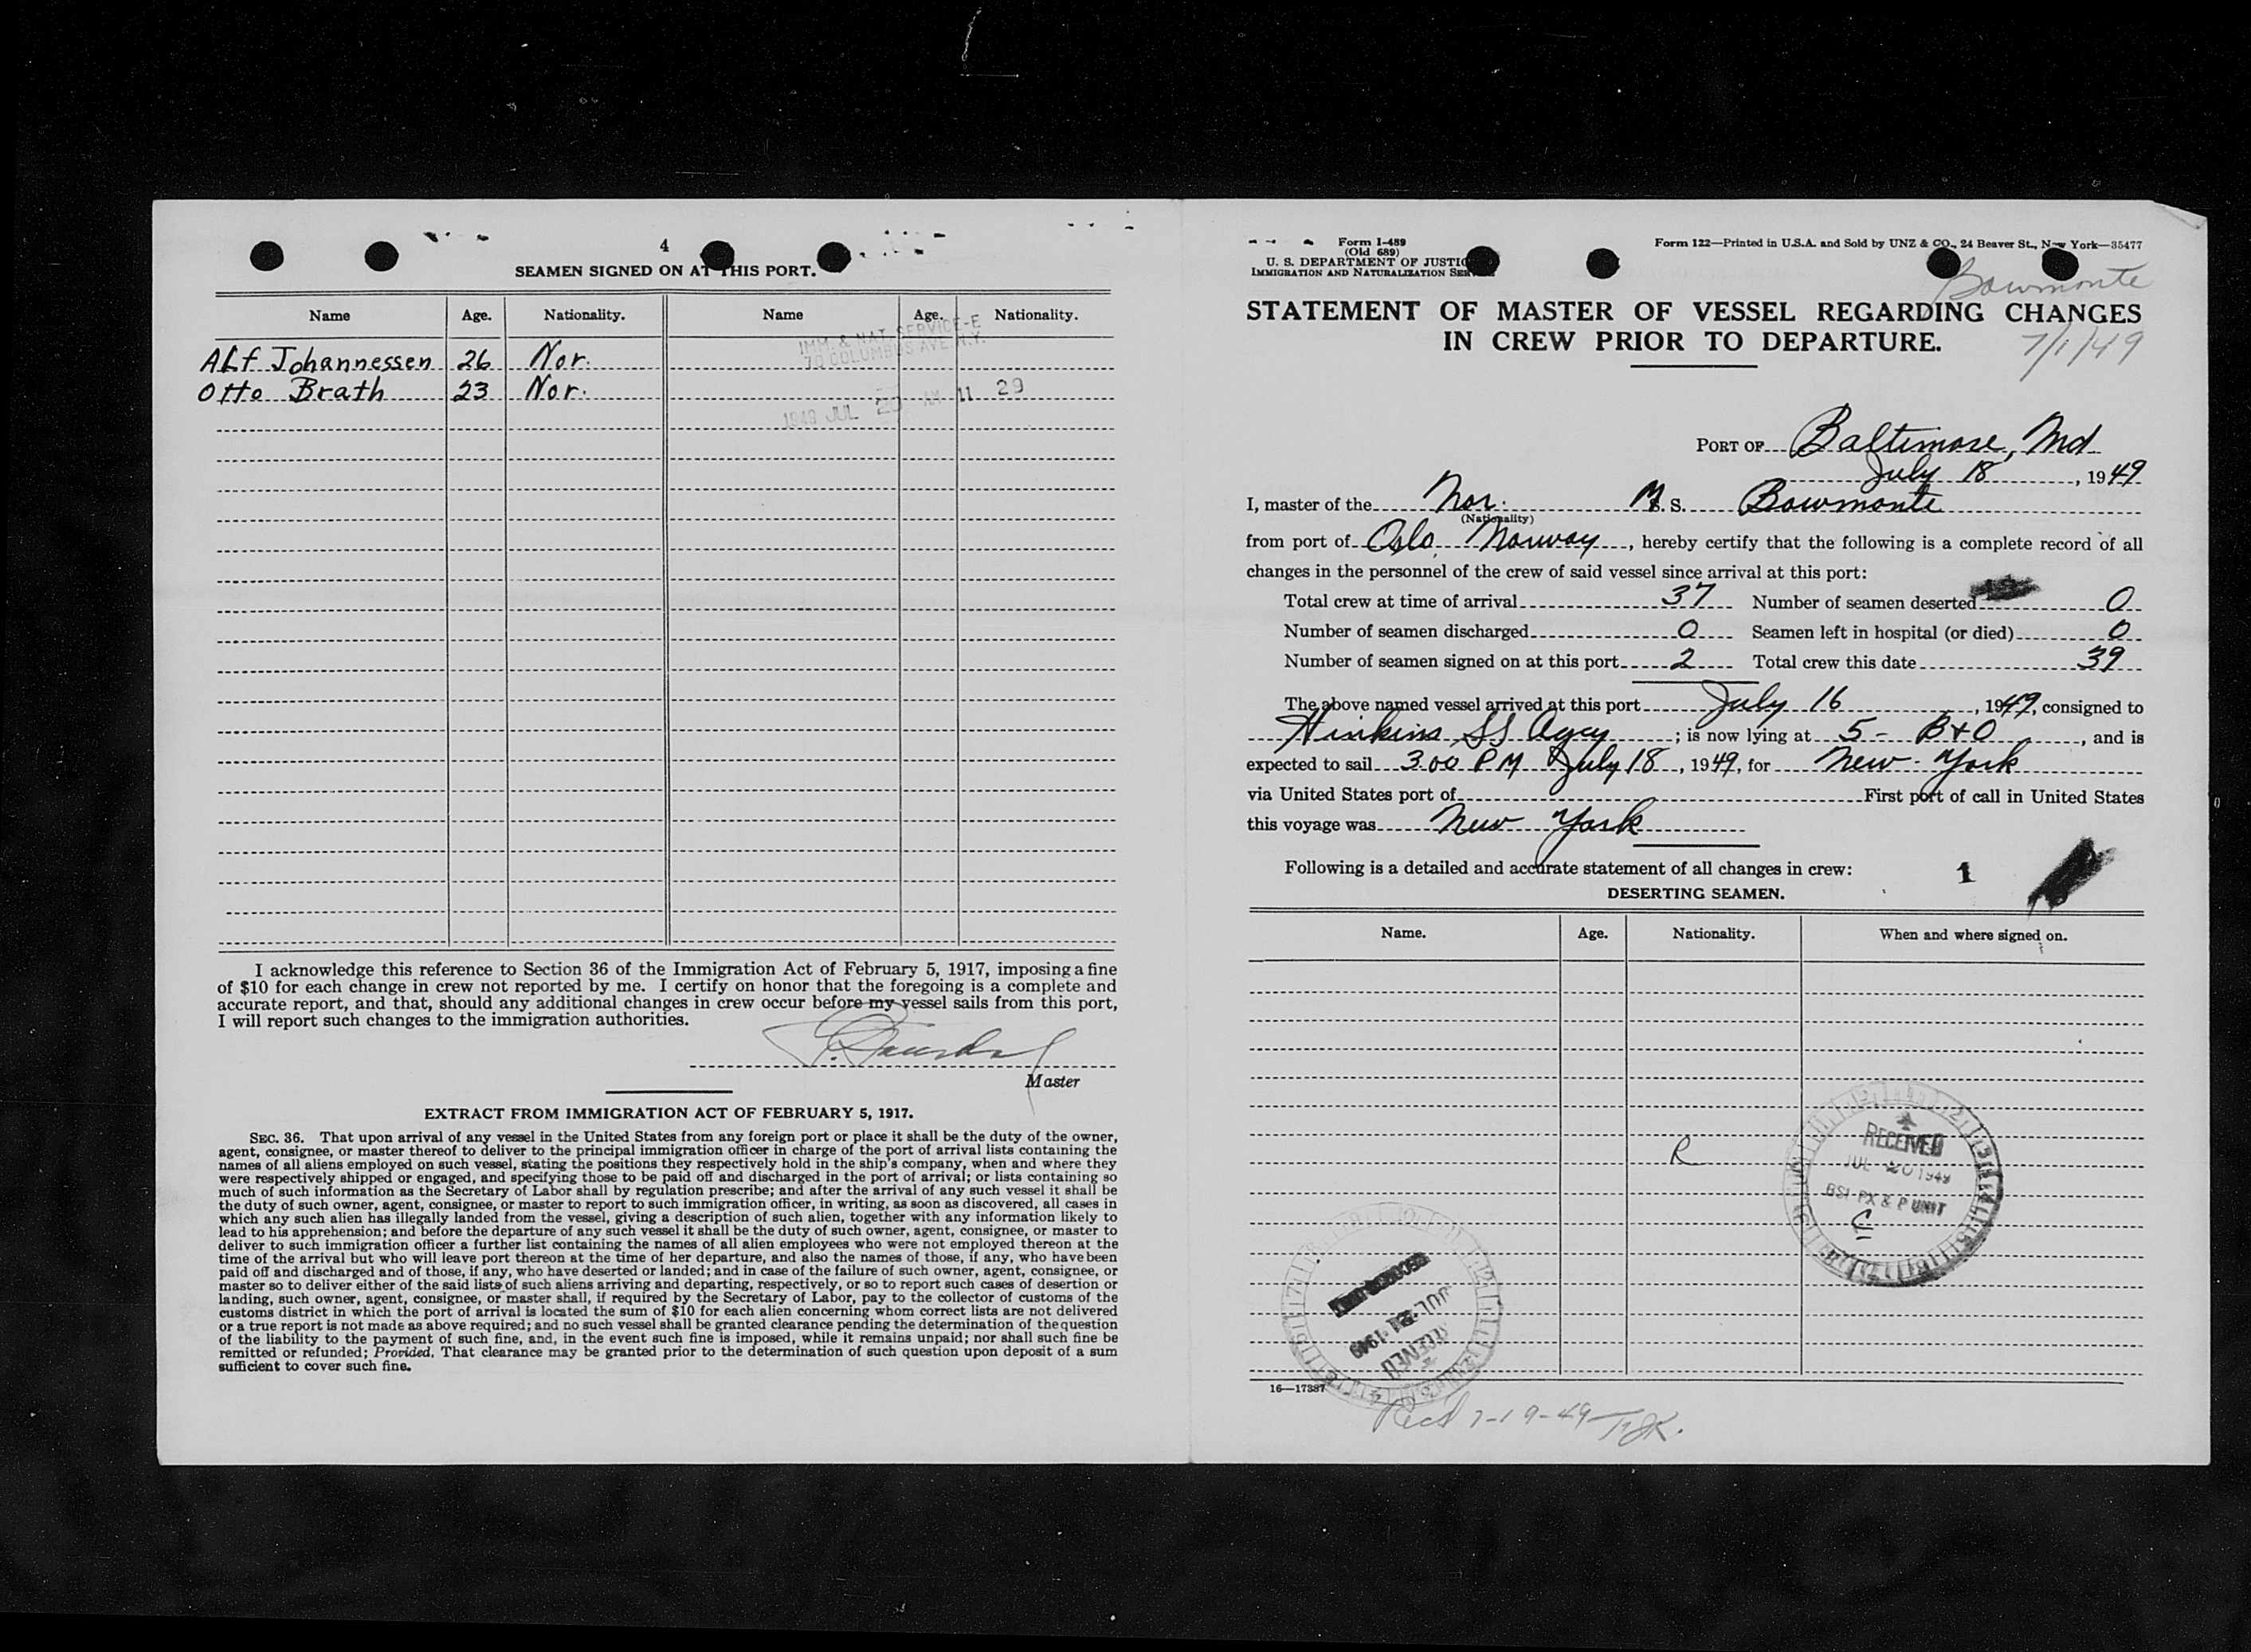 4
SEAMEN SIGNED ON AT THIS PORT.
Name Age. Nationality. Name Age. Nationality.
IMM. & NAT. SERVICE-E
70 COLUMBUS AVE. N.Y.
Alf Johannessen 26 Nor.
Otto Brath 23 Nor.
1949 JUL 20 AM 11 29
I acknowledge this reference to Section 36 of the Immigration Act of February 5, 1917, imposing a fine
of $10 for each change in crew not reported by me. I certify on honor that the foregoing is a complete and
accurate report, and that, should any additional changes in crew occur before my vessel sails from this port,
I will report such changes to the immigration authorities.
Master
EXTRACT FROM IMMIGRATION ACT OF FEBRUARY 5, 1917.
SEC. 36. That upon arrival of any vessel in the United States from any foreign port or place it shall be the duty of the owner,
agent, consignee, or master thereof to deliver to the principal immigration officer in charge of the port of arrival lists containing the
names of all aliens employed on such vessel, stating the positions they respectively hold in the ship's company, when and where they
were respectively shipped or engaged, and specifying those to be paid off and discharged in the port of arrival; or lists containing so
much of such information as the Secretary of Labor shall by regulation prescribe; and after the arrival of any such vessel it shall be
the duty of such owner, agent, consignee, or master to report to such immigration officer, in writing, as soon as discovered, all cases in
which any such alien has illegally landed from the vessel, giving a description of such alien, together with any information likely to
lead to his apprehension; and before the departure of any such vessel it shall be the duty of such owner, agent, consignee, or master to
deliver to such immigration officer a further list containing the names of all alien employees who were not employed thereon at the
time of the arrival but who will leave port thereon at the time of her departure, and also the names of those, if any, who have been
paid off and discharged and of those, if any, who have deserted or landed; and in case of the failure of such owner, agent, consignee, or
master so to deliver either of the said lists of such aliens arriving and departing, respectively, or so to report such cases of desertion or
landing, such owner, agent, consignee, or master shall, if required by the Secretary of Labor, pay to the collector of customs of the
customs district in which the port of arrival is located the sum of $10 for each alien concerning whom correct lists are not delivered
or a true report is not made as above required; and no such vessel shall be granted clearance pending the determination of the question
of the liability to the payment of such fine, and, in the event such fine is imposed, while it remains unpaid; nor shall such fine be
remitted or refunded; Provided, That clearance may be granted prior to the determination of such question upon deposit of a sum
sufficient to cover such fine.
Form I-489
(Old 689)
U. S. DEPARTMENT OF JUSTICE
IMMIGRATION AND NATURALIZATION SERVICE
Form 122—Printed in U.S.A. and Sold by UNZ & CO., 24 Beaver St., New York—35477
Bowmonte
STATEMENT OF MASTER OF VESSEL REGARDING CHANGES
IN CREW PRIOR TO DEPARTURE.
7/1/49
PORT OF Baltimore, Md
July 18, 1949
I, master of the Nor. M. S. Bowmonte
(Nationality)
from port of Oslo Norway, hereby certify that the following is a complete record of all
changes in the personnel of the crew of said vessel since arrival at this port:
Total crew at time of arrival 37 Number of seamen deserted 0
Number of seamen discharged 0 Seamen left in hospital (or died) 0
Number of seamen signed on at this port 2 Total crew this date 39
The above named vessel arrived at this port July 16, 1949, consigned to
Hinkins SS Agcy; is now lying at 5 - B+O, and is
expected to sail 3.00 PM July 18, 1949, for New York
via United States port of First port of call in United States
this voyage was New York
Following is a detailed and accurate statement of all changes in crew:
1
DESERTING SEAMEN.
Name. Age. Nationality. When and where signed on.
R
RECEIVED
JUL 20 1949
BSI-PX & P UNIT
C
JUL 21 1949
RECEIVED
16—17387
Recd 7-19-49